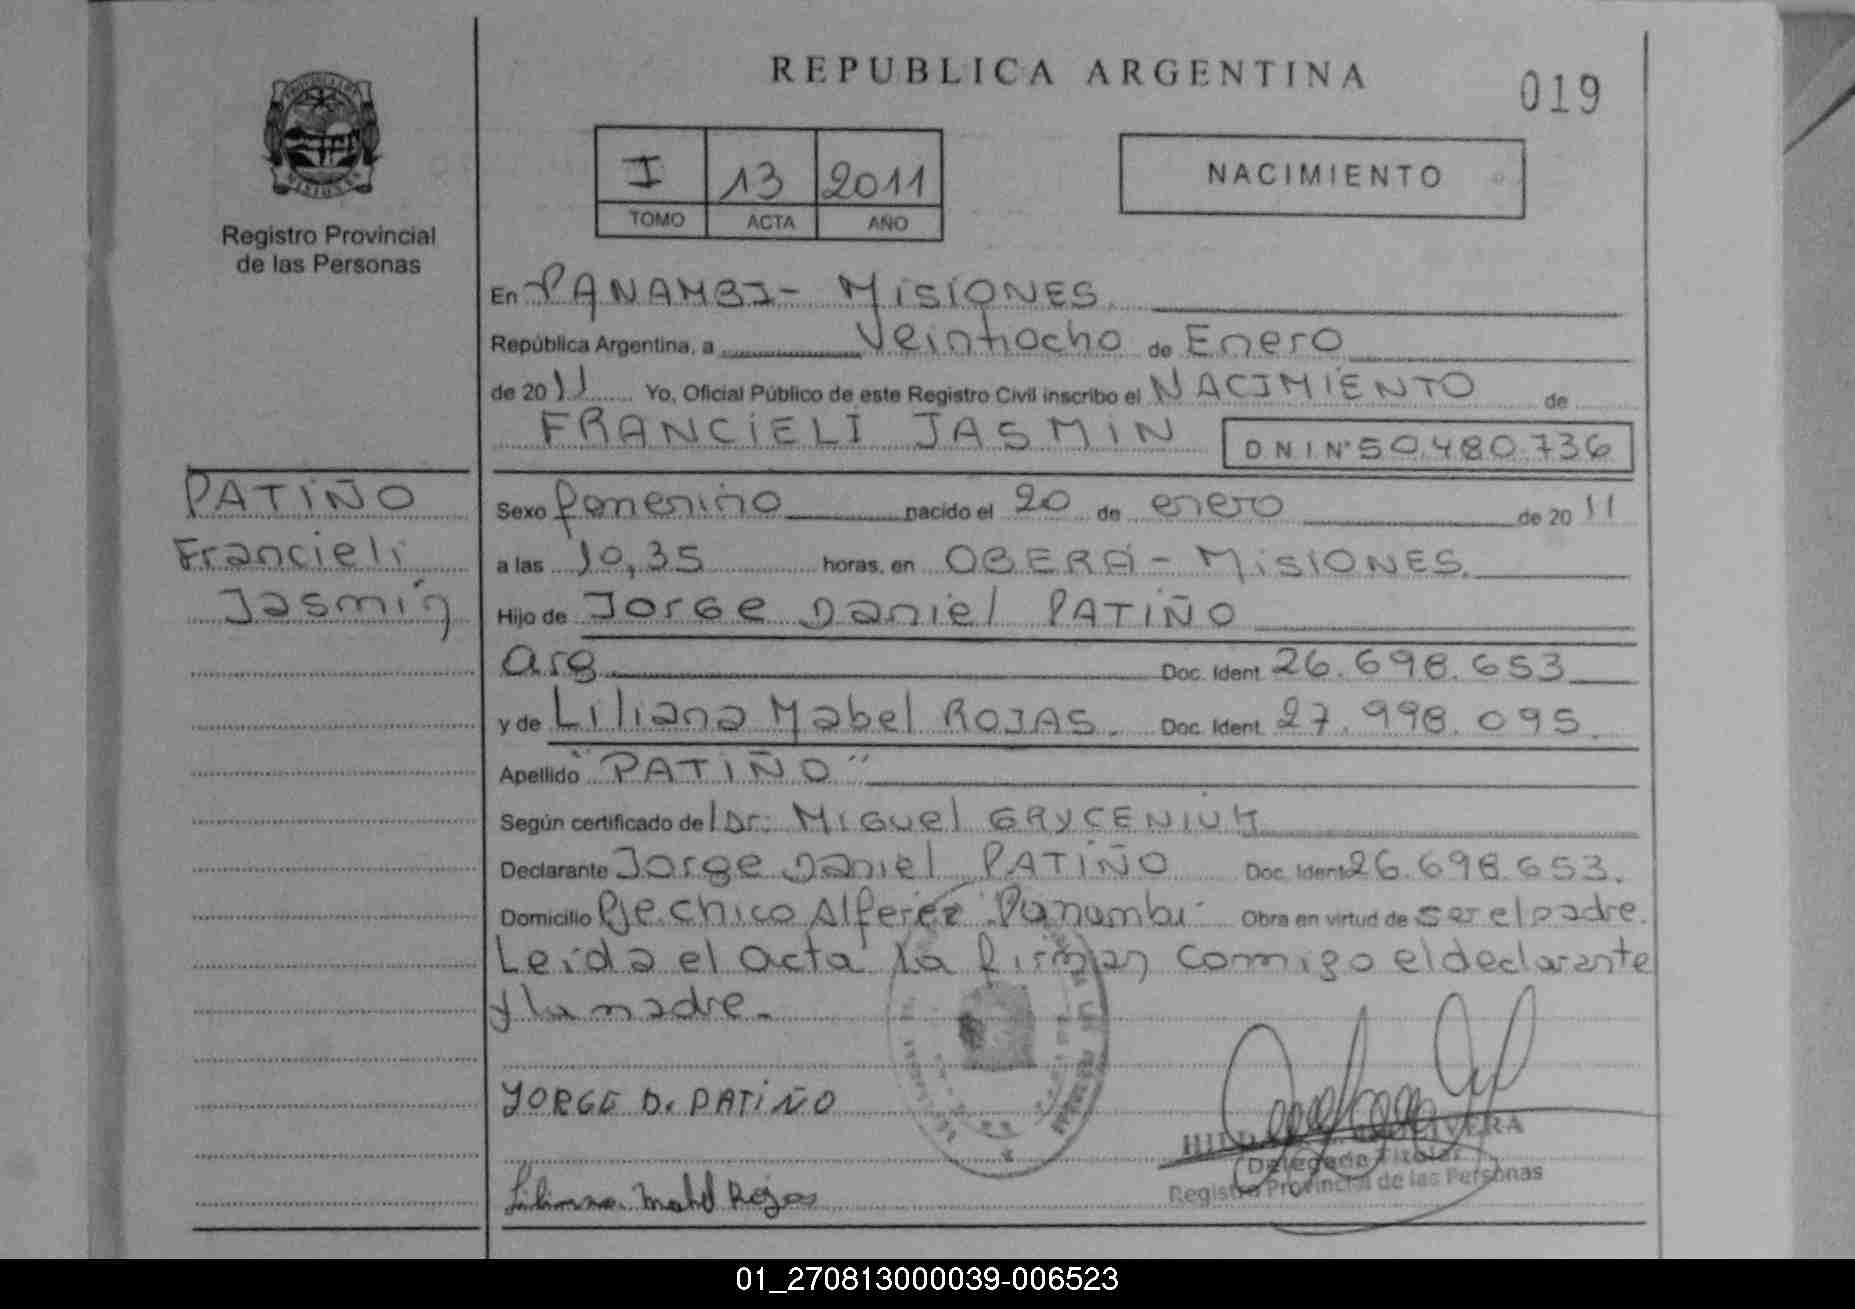 REPUBLICA ARGENTINA
019
I 13 2011
TOMO ACTA AÑO
NACIMIENTO
Registro Provincial
de las Personas
En PANAMBI - MISIONES
República Argentina, a Veintiocho de Enero
de 2011 Yo, Oficial Público de este Registro Civil inscribo el NACIMIENTO de
FRANCIELI JASMIN DNI Nº 50.480.736
PATIÑO
Francieli
Jasmin
Sexo femenino nacido el 20 de enero de 2011
a las 10,35 horas, en OBERÁ - MISIONES.
Hijo de Jorge Daniel PATIÑO
arg Doc. Ident. 26.698.653
y de Liliana Mabel ROJAS. Doc. Ident. 27.998.095.
Apellido "PATIÑO"
Según certificado del Dr. Miguel GRYCENIUK
Declarante Jorge Daniel PATIÑO Doc. Ident. 26.698.653.
Domicilio Pje. Chico Alferez "Panambi" Obra en virtud de ser el padre.
Leída el acta la firman conmigo el declarante
y la madre.
JORGE D. PATIÑO
Liliana Mabel Rojas
Delegada Titular
Registro Provincial de las Personas
01_270813000039-006523